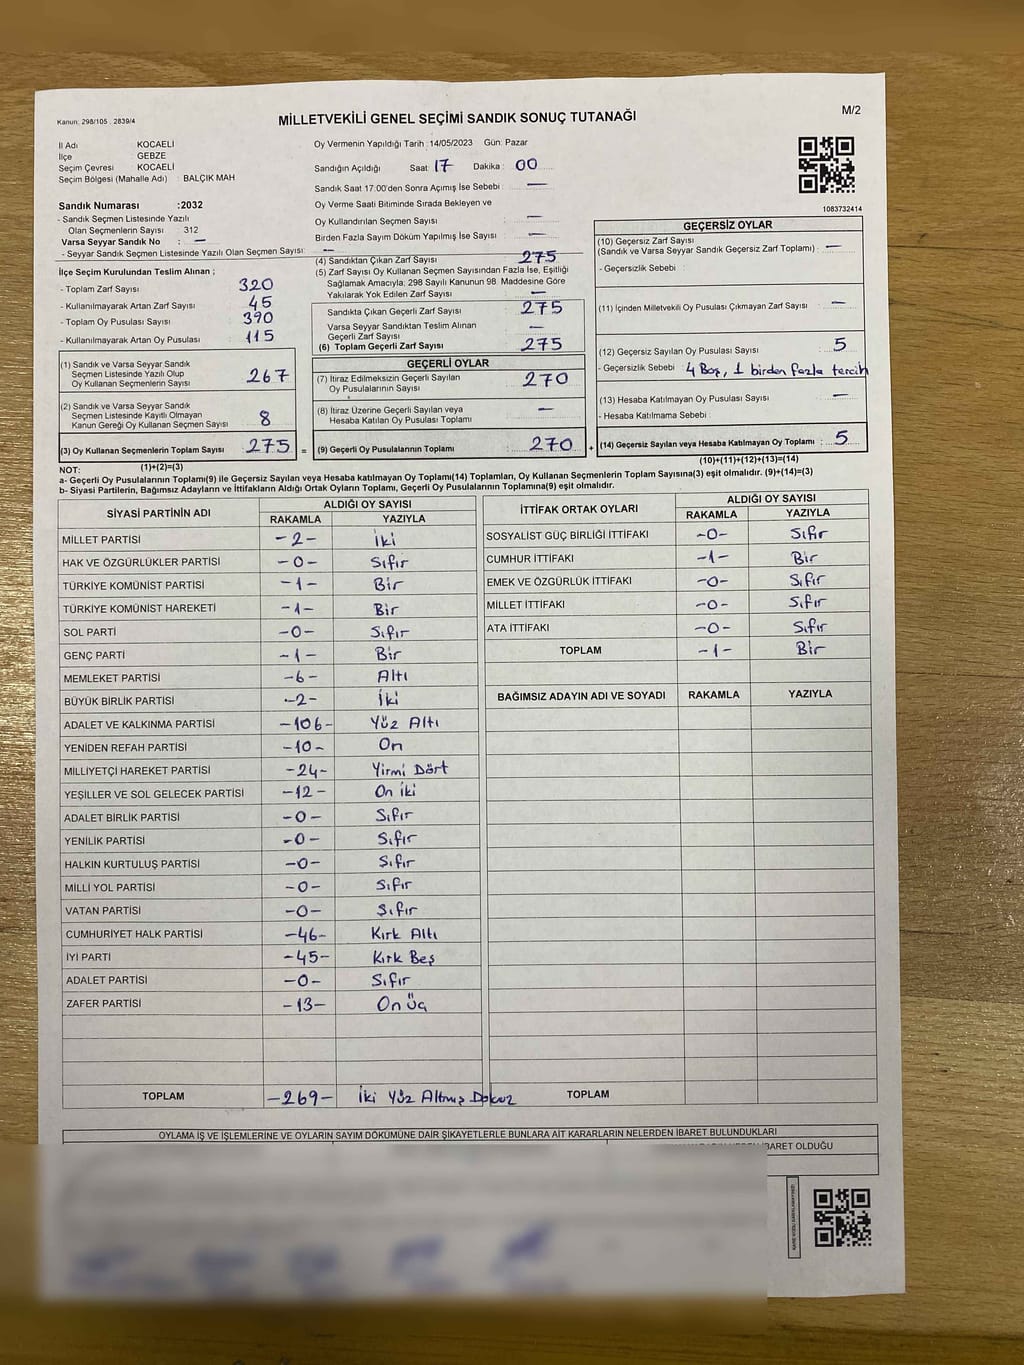 Kanun: 298/105 . 2839/4
MİLLETVEKİLİ GENEL SEÇİMİ SANDIK SONUÇ TUTANAĞI
M/2
İl Adı KOCAELİ
İlçe GEBZE
Seçim Çevresi KOCAELİ
Seçim Bölgesi (Mahalle Adı) : BALÇIK MAH
Sandık Numarası :2032
- Sandık Seçmen Listesinde Yazılı
Olan Seçmenlerin Sayısı : 312
Varsa Seyyar Sandık No : —
- Seyyar Seçmen Listesinde Yazılı Olan Seçmen Sayısı: —
Oy Vermenin Yapıldığı Tarih : 14/05/2023 Gün: Pazar
Sandığın Açıldığı Saat: 17 Dakika : 00
Sandık Saat 17:00'den Sonra Açımış İse Sebebi : —
Oy Verme Saati Bitiminde Sırada Bekleyen ve
Oy Kullandırılan Seçmen Sayısı : —
Birden Fazla Sayım Döküm Yapılmış İse Sayısı : —
1083732414
İlçe Seçim Kurulundan Teslim Alınan ;
- Toplam Zarf Sayısı : 320
- Kullanılmayarak Artan Zarf Sayısı : 45
- Toplam Oy Pusulası Sayısı : 390
- Kullanılmayarak Artan Oy Pusulası : 115
(1) Sandık ve Varsa Seyyar Sandık
Seçmen Listesinde Yazılı Olup
Oy Kullanan Seçmenlerin Sayısı : 267
(2) Sandık ve Varsa Seyyar Sandık
Seçmen Listesinde Kayıtlı Olmayan
Kanun Gereği Oy Kullanan Seçmen Sayısı : 8
(3) Oy Kullanan Seçmenlerin Toplam Sayısı : 275 =
(4) Sandıktan Çıkan Zarf Sayısı : 275
(5) Zarf Sayısı Oy Kullanan Seçmen Sayısından Fazla İse, Eşitliği
Sağlamak Amacıyla; 298 Sayılı Kanunun 98. Maddesine Göre
Yakılarak Yok Edilen Zarf Sayısı : —
Sandıkta Çıkan Geçerli Zarf Sayısı : 275
Varsa Seyyar Sandıktan Teslim Alınan
Geçerli Zarf Sayısı : —
(6) Toplam Geçerli Zarf Sayısı : 275
GEÇERLİ OYLAR
(7) İtiraz Edilmeksizin Geçerli Sayılan
Oy Pusulalarının Sayısı : 270
(8) İtiraz Üzerine Geçerli Sayılan veya
Hesaba Katılan Oy Pusulası Toplamı : —
(9) Geçerli Oy Pusulalarının Toplamı : 270 +
GEÇERSİZ OYLAR
(10) Geçersiz Zarf Sayısı
(Sandık ve Varsa Seyyar Sandık Geçersiz Zarf Toplamı) : —
- Geçersizlik Sebebi :
(11) İçinden Milletvekili Oy Pusulası Çıkmayan Zarf Sayısı : —
(12) Geçersiz Sayılan Oy Pusulası Sayısı : 5
- Geçersizlik Sebebi : 4 Boş, 1 birden fazla tercih
(13) Hesaba Katılmayan Oy Pusulası Sayısı : —
- Hesaba Katılmama Sebebi :
(14) Geçersiz Sayılan veya Hesaba Katılmayan Oy Toplamı : 5
NOT: (1)+(2)=(3) (10)+(11)+(12)+(13)=(14)
a- Geçerli Oy Pusulalarının Toplamı(9) ile Geçersiz Sayılan veya Hesaba katılmayan Oy Toplamı(14) Toplamları, Oy Kullanan Seçmenlerin Toplam Sayısına(3) eşit olmalıdır. (9)+(14)=(3)
b- Siyasi Partilerin, Bağımsız Adayların ve İttifakların Aldığı Ortak Oyların Toplamı, Geçerli Oy Pusulalarının Toplamına(9) eşit olmalıdır.
SİYASİ PARTİNİN ADI ALDIĞI OY SAYISI
RAKAMLA YAZIYLA
MİLLET PARTİSİ -2- İki
HAK VE ÖZGÜRLÜKLER PARTİSİ -0- Sıfır
TÜRKİYE KOMÜNİST PARTİSİ -1- Bir
TÜRKİYE KOMÜNİST HAREKETİ -1- Bir
SOL PARTİ -0- Sıfır
GENÇ PARTİ -1- Bir
MEMLEKET PARTİSİ -6- Altı
BÜYÜK BİRLİK PARTİSİ -2- İki
ADALET VE KALKINMA PARTİSİ -106- Yüz Altı
YENİDEN REFAH PARTİSİ -10- On
MİLLİYETÇİ HAREKET PARTİSİ -24- Yirmi Dört
YEŞİLLER VE SOL GELECEK PARTİSİ -12- On iki
ADALET BİRLİK PARTİSİ -0- Sıfır
YENİLİK PARTİSİ -0- Sıfır
HALKIN KURTULUŞ PARTİSİ -0- Sıfır
MİLLİ YOL PARTİSİ -0- Sıfır
VATAN PARTİSİ -0- Sıfır
CUMHURİYET HALK PARTİSİ -46- Kırk Altı
İYİ PARTİ -45- Kırk Beş
ADALET PARTİSİ -0- Sıfır
ZAFER PARTİSİ -13- On Üç
TOPLAM -269- İki Yüz Altmış Dokuz
İTTİFAK ORTAK OYLARI ALDIĞI OY SAYISI
RAKAMLA YAZIYLA
SOSYALİST GÜÇ BİRLİĞİ İTTİFAKI -0- Sıfır
CUMHUR İTTİFAKI -1- Bir
EMEK VE ÖZGÜRLÜK İTTİFAKI -0- Sıfır
MİLLET İTTİFAKI -0- Sıfır
ATA İTTİFAKI -0- Sıfır
TOPLAM -1- Bir
BAĞIMSIZ ADAYIN ADI VE SOYADI RAKAMLA YAZIYLA
TOPLAM
OYLAMA İŞ VE İŞLEMLERİNE VE OYLARIN SAYIM DÖKÜMÜNE DAİR ŞİKAYETLERLE BUNLARA AİT KARARLARIN NELERDEN İBARET BULUNDUKLARI
İBARET OLDUĞU